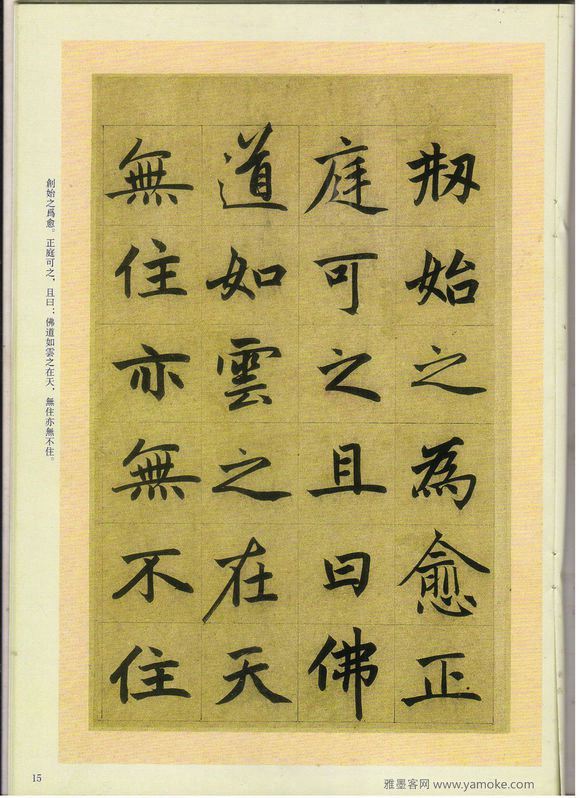 刱始之為愈正
庭可之且曰佛
道如雲之在天
無住亦無不住
創始之爲愈。正庭可之，且曰：佛道如雲之在天，無住亦無不住。
15
雅墨客网 www.yamoke.com